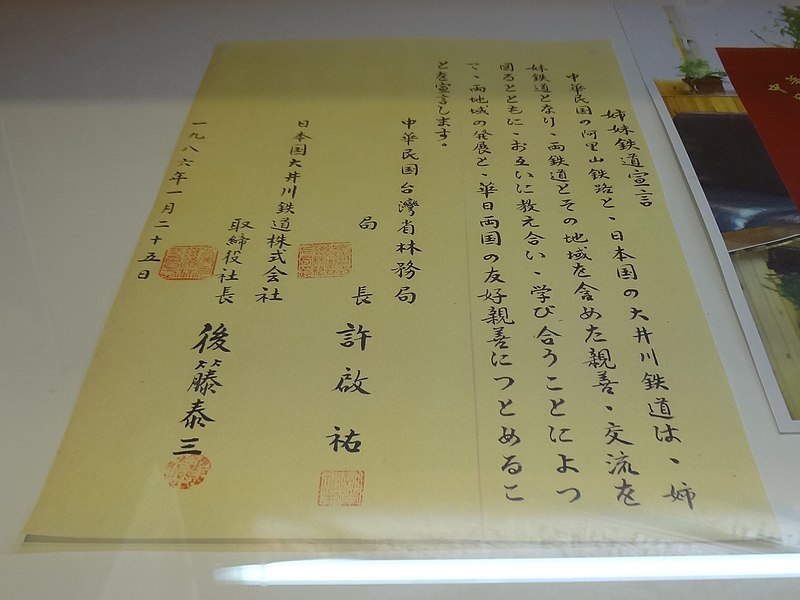 姉妹鉄道宣言
中華民国の阿里山鉄路と、日本国の大井川鉄道は、姉
妹鉄道となり、両鉄道とその地域を含めた親善、交流を
図るとともに、お互いに教え合い、学び合うことによつ
て、両地域の発展と、華日両国の友好親善につとめるこ
とを宣言します。
中華民国台湾省林務局
局長 許啟祐
日本国大井川鉄道株式会社
取締役社長 後藤泰三
一九八六年一月二十五日